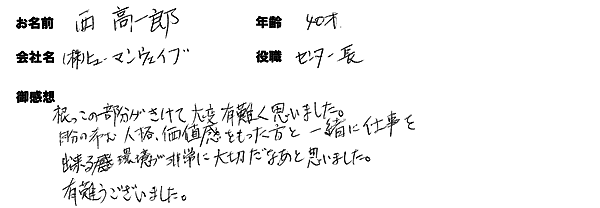 お名前 西 高一郎 年齢 40才
会社名 (株)ヒューマンウェイブ 役職 センター長
御感想
根っこの部分がきけて大変有難く思いました。
自分の希む人格、価値感をもった方と一緒に仕事を
出来る環境が非常に大切だなあと思いました。
有難うございました。